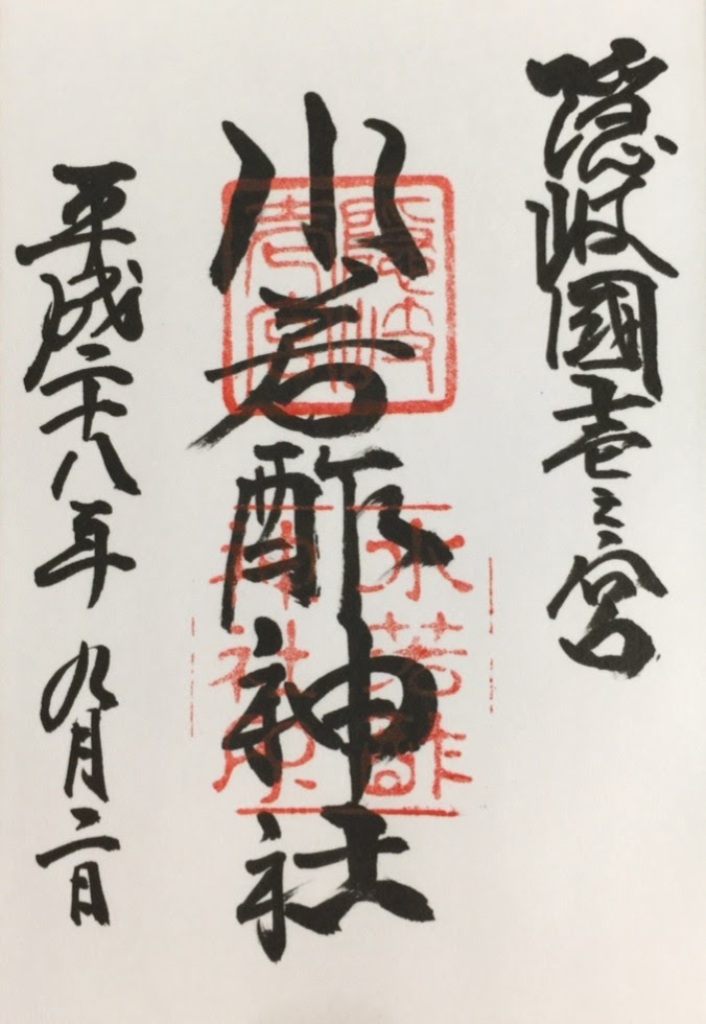 隠岐國壱之宮
水若酢神社
平成二十八年 九月二日
隠岐
壱宮
水若酢
神社印